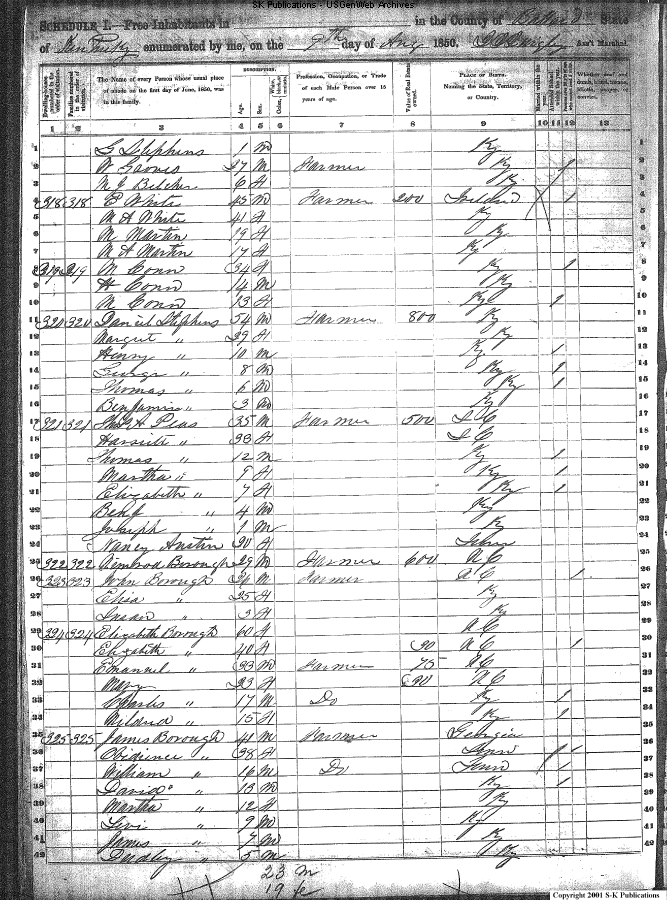 SK Publications - USGenWeb Archives
SCHEDULE I.—Free Inhabitants in in the County of Ballard State
of Kentucky enumerated by me, on the 9th day of Aug 1850. Ass't Marshal.
Dwelling-houses numbered in the order of visitation.
Families numbered in the order of visitation.
The Name of every Person whose usual place of abode on the first day of June, 1850, was in this family.
DESCRIPTION.
Age.
Sex.
Color, White, black, or mulatto.
Profession, Occupation, or Trade of each Male Person over 15 years of age.
Value of Real Estate owned.
PLACE OF BIRTH. Naming the State, Territory, or Country.
Married within the year.
Attended School within the year.
Whether deaf and dumb, blind, insane, idiotic, pauper, or convict.
1 2 3 4 5 6 7 8 9 10 11 12 13
1 G Stephins 1 M Ky 1
2 W Groves 27 M Farmer Ky 1 2
3 M J Belcher 6 f Ky 3
4 318 318 E White 45 M Farmer 200 1 4
5 M A White 41 f Ky 5
6 M Martin 19 f Ky 6
7 M A Martin 17 f Ky 7
8 319 319 M Conn 34 f Ky 1 8
9 H Conn 14 M Ky 9
10 M Conn 13 f Ky 1 10
11 320 320 Daniel Stephins 54 M Farmer 800 Ky 11
12 Margret " 29 f Ky 12
13 Henry " 10 M Ky 1 13
14 George " 8 M Ky 1 14
15 Thomas " 6 M Ky 1 15
16 Benjamin " 3 M Ky 16
17 321 321 Peas 35 M Farmer 500 S C 17
18 Harriett " 33 f S C 18
19 Thomas " 12 M Ky 1 19
20 Martha " 9 f Ky 1 20
21 Elizabeth " 7 f Ky 1 21
22 Benj " 4 M Ky 22
23 Joseph " 1 M Ky 23
24 Nancy Austin 30 f Tenn 24
25 322 322 Nimrod Borough 29 M Farmer 600 N C 25
26 323 323 John Borough 26 M Farmer N C 1 26
27 Elisa " 25 f Ky 27
28 " 3 f Ky 28
29 324 324 Elizabeth Borough 60 f N C 29
30 Elizabeth " 40 f 90 N C 1 30
31 Emanuel " 33 M Farmer 75 N C 31
32 Mary " 23 f N C 32
33 Charles " 17 M Do Ky 1 33
34 Mildred " 15 f Ky 1 34
35 325 325 James Borough 41 M Farmer Georgia 35
36 Obidience " 38 f Tenn 1 1 36
37 William " 16 M Do Tenn 1 37
38 David " 13 M Ky 1 38
39 Martha " 12 f Ky 39
40 Levi " 9 M Ky 40
41 James " 7 M Ky 41
42 Dudley " 5 M Ky 42
23 M
19 fe
Copyright 2001 S-K Publications